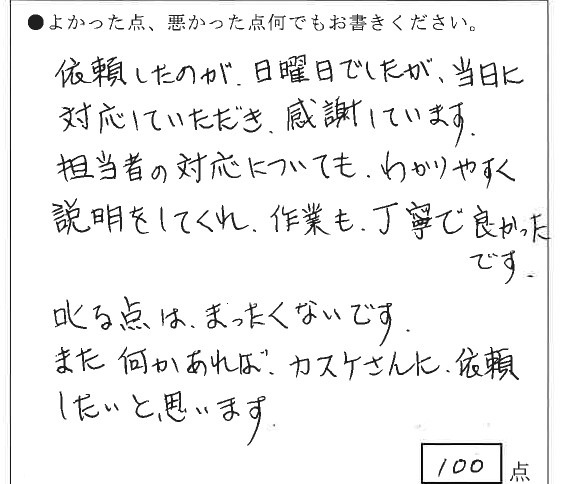 ●よかった点、悪かった点何でもお書きください。
依頼したのが、日曜日でしたが、当日に
対応していただき、感謝しています。
担当者の対応についても、わかりやすく
説明をしてくれ、作業も、丁寧で良かった
です。
叱る点は、まったくないです。
また何かあれば、カスケさんに、依頼
したいと思います。
100 点